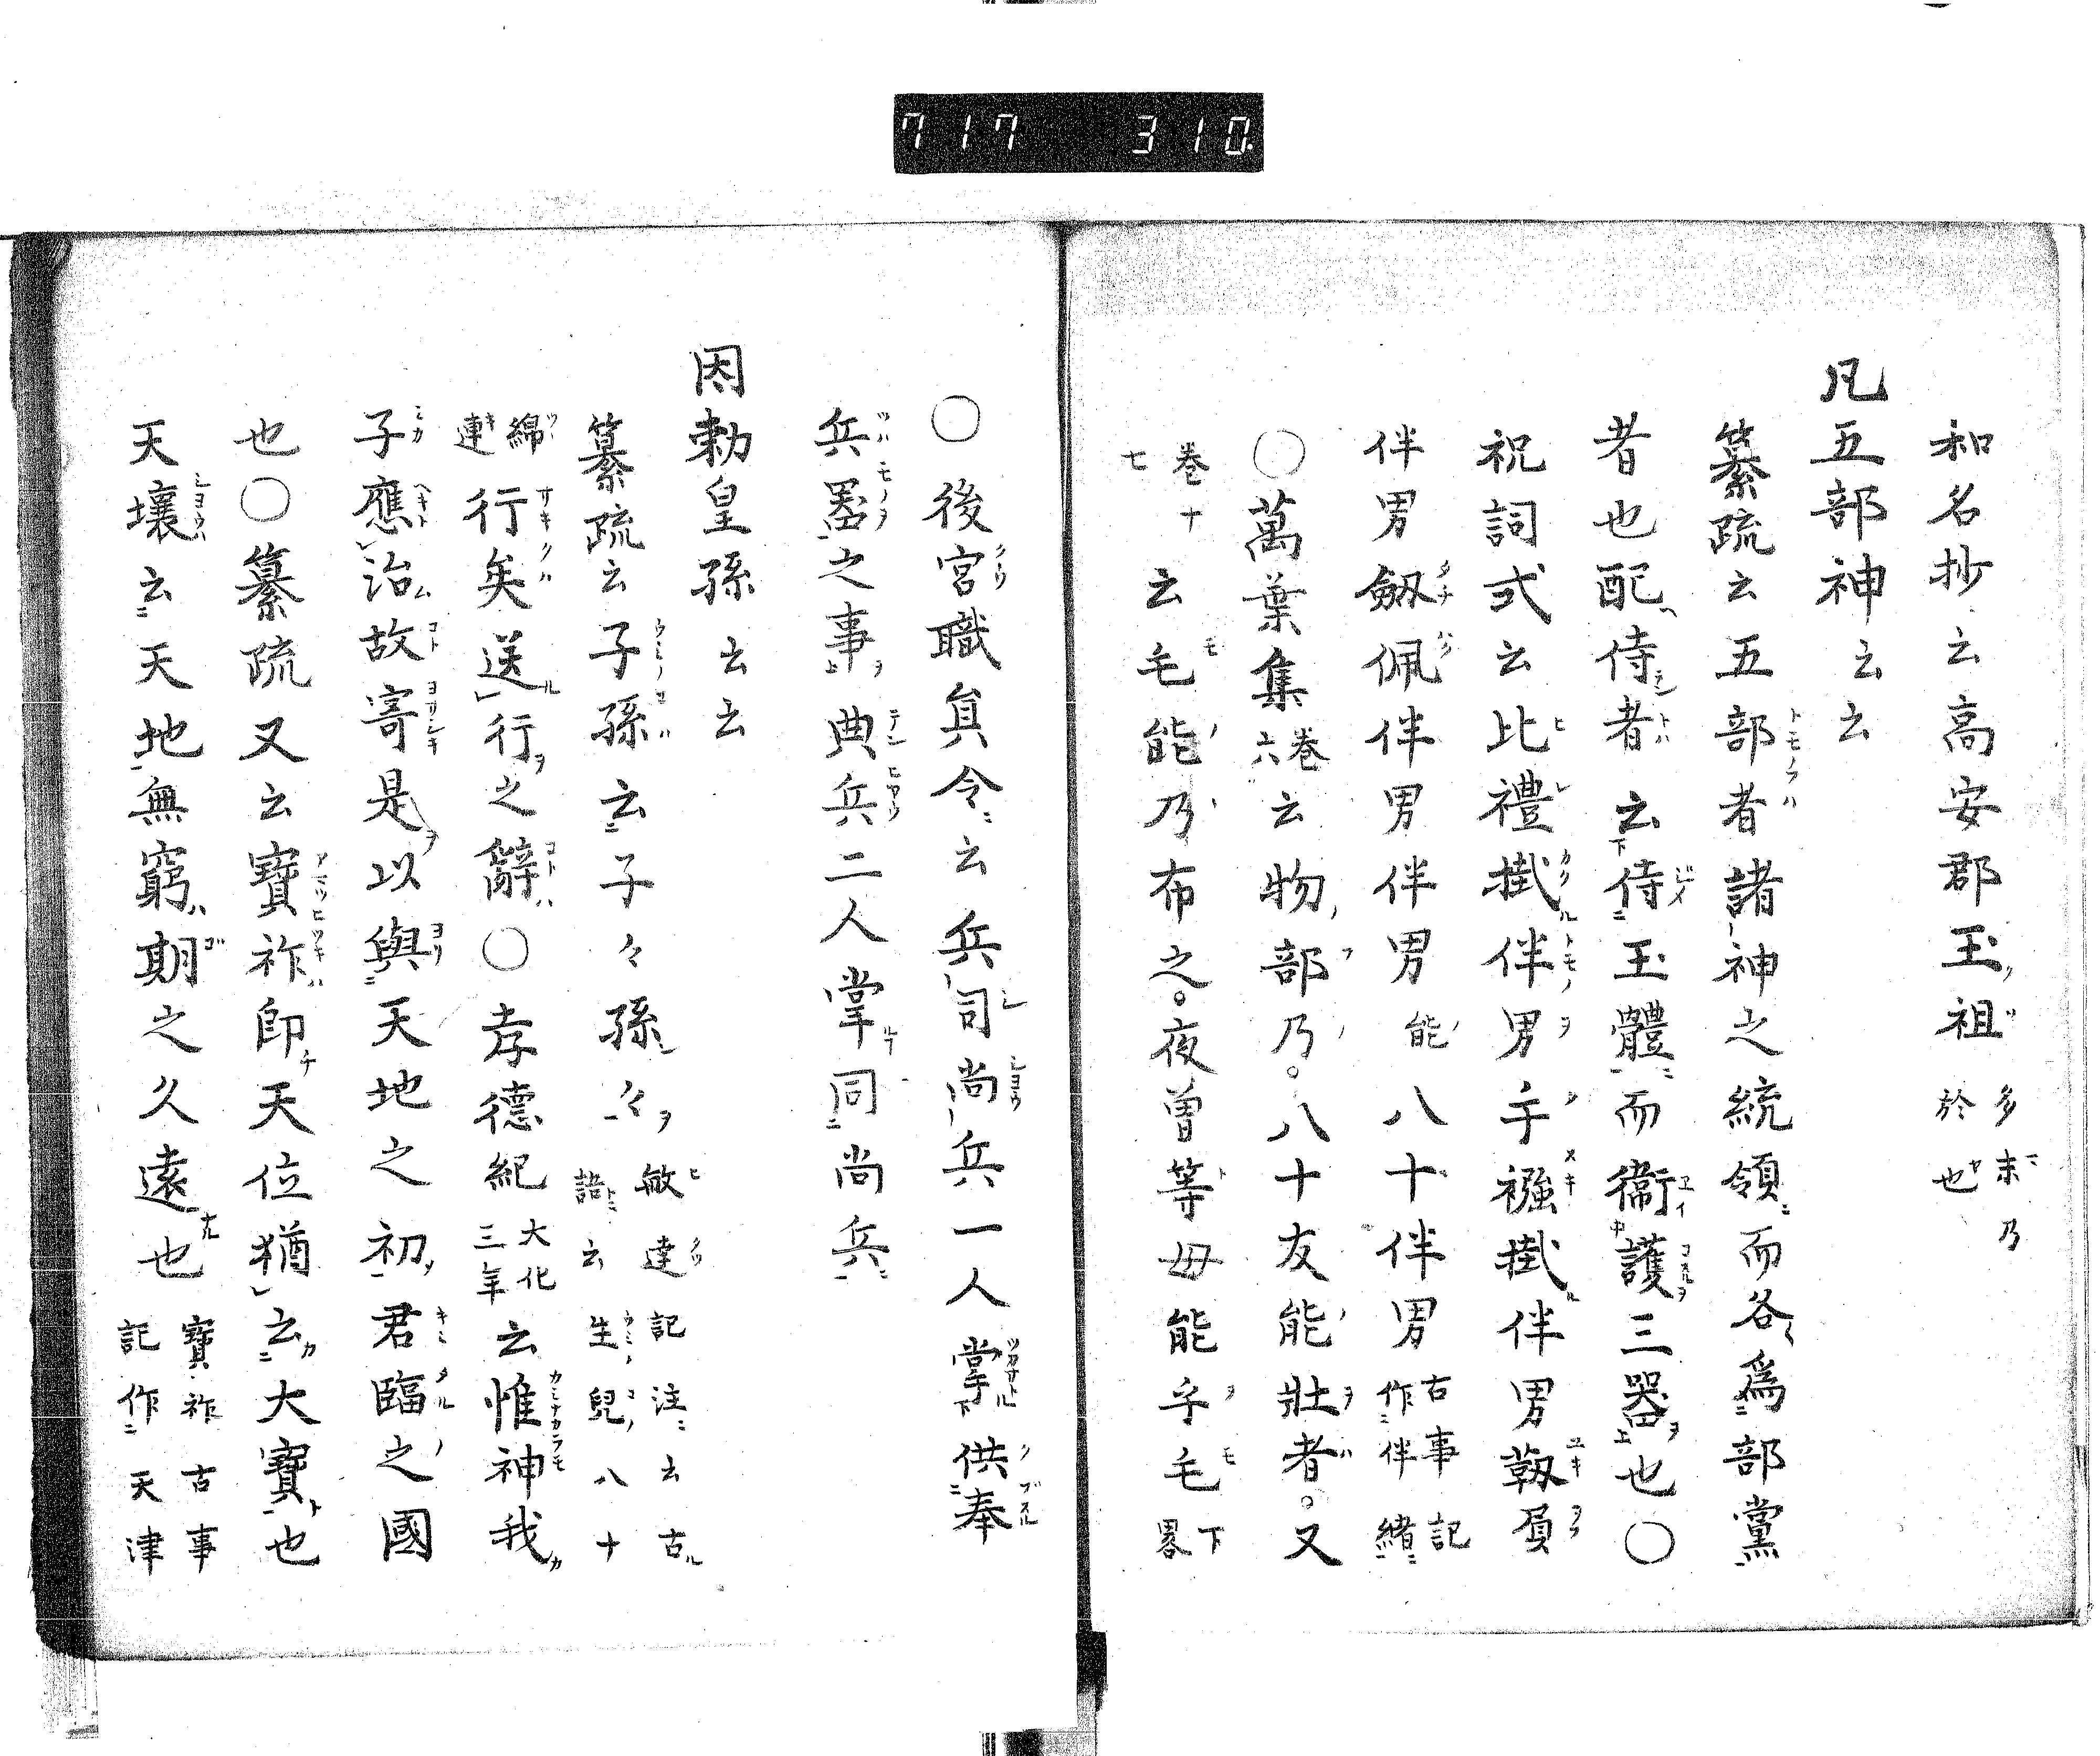 717 310
和名抄云高安郡玉祖 多末乃於也
凡五部神云云
纂疏云五部者諸神之統領而各爲部黨
者也配侍者云侍玉體而衞護三器也〇
祝詞式云比禮掛伴男手襁掛伴男靱負
伴男劔佩伴男伴男能八十伴男 古事記作伴緒
〇萬葉集 巻六 云物部乃。八十友能壯者。又
巻十七 云毛能乃布之。夜曽等母能乎毛 下畧
〇後宮職貟令云兵司尚兵一人掌供奉
兵噐之事典兵二人掌同尚兵
因勅皇孫云云
纂疏云子孫云子々孫々 敏達記注云古語云生兒八十
綿連 行矣送行之辭〇孝德紀 大化三年 云惟神我
子應治故寄是以與天地之初君臨之國
也〇纂疏又云寶祚即天位猶云大寶也
天壤云天地無窮期之久遠也 寶祚古事記作天津